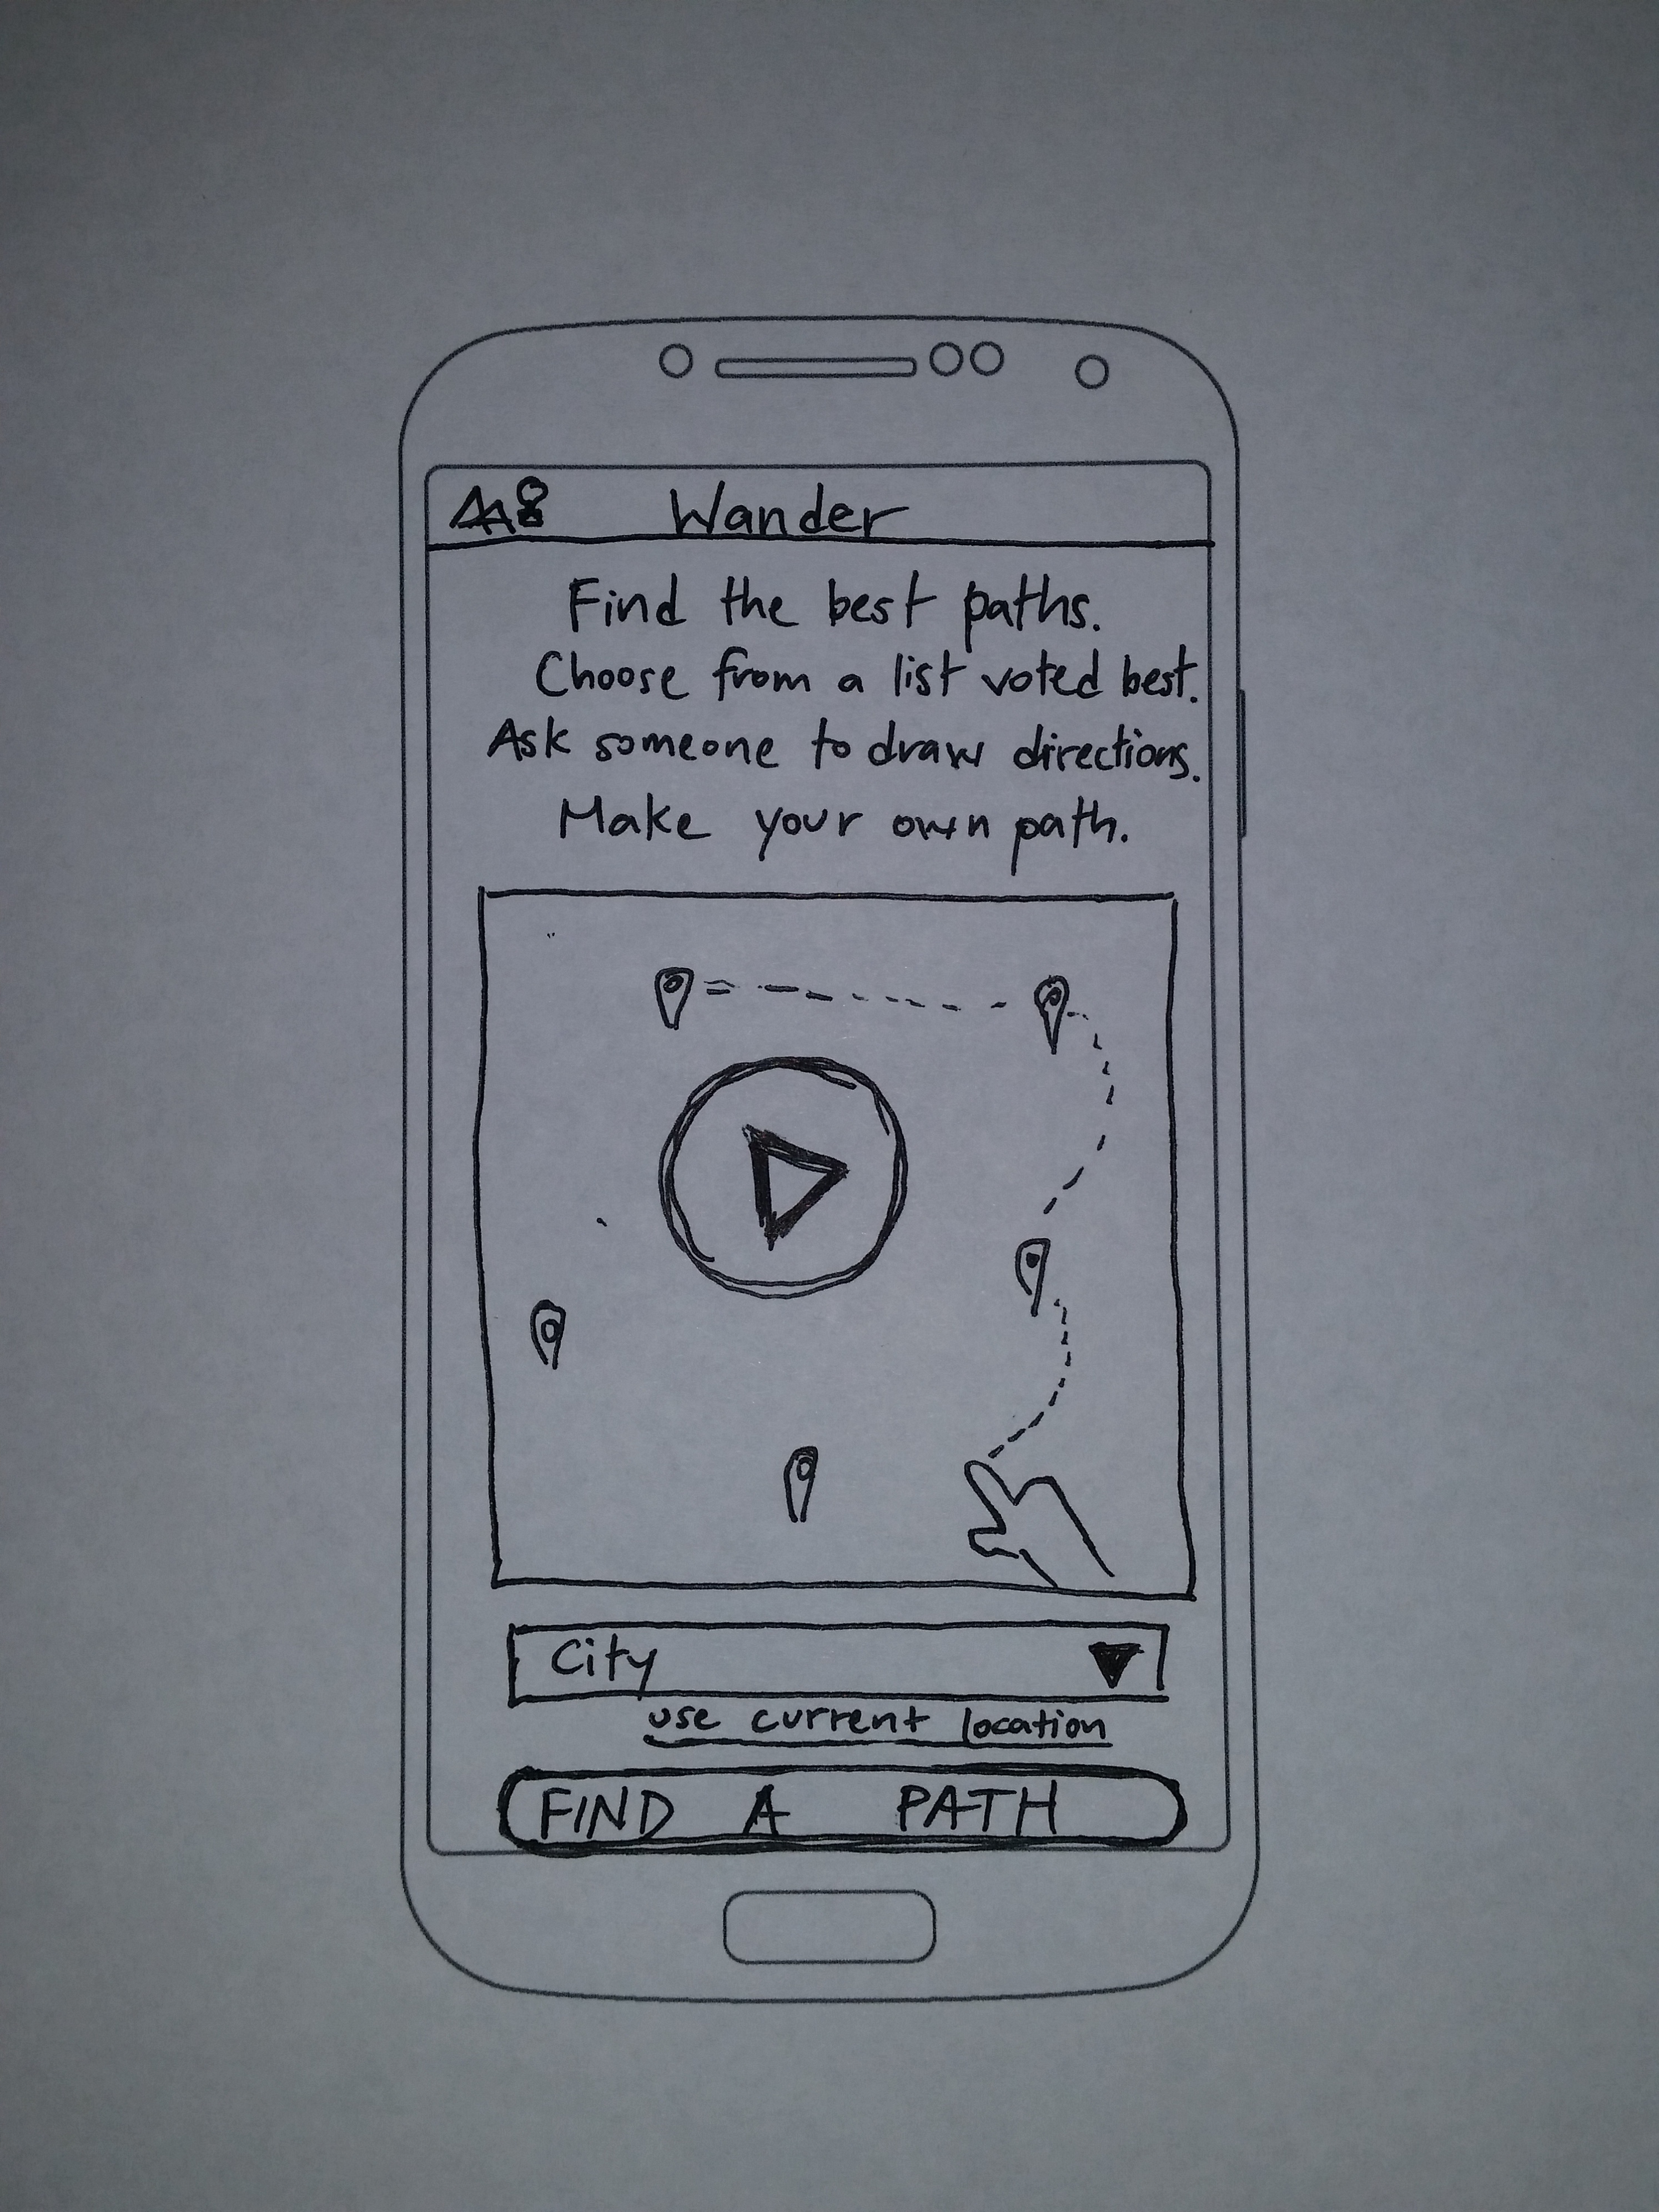 Wander
Find the best paths.
Choose from a list voted best.
Ask someone to draw directions.
Make your own path.
City
use current location
FIND A PATH